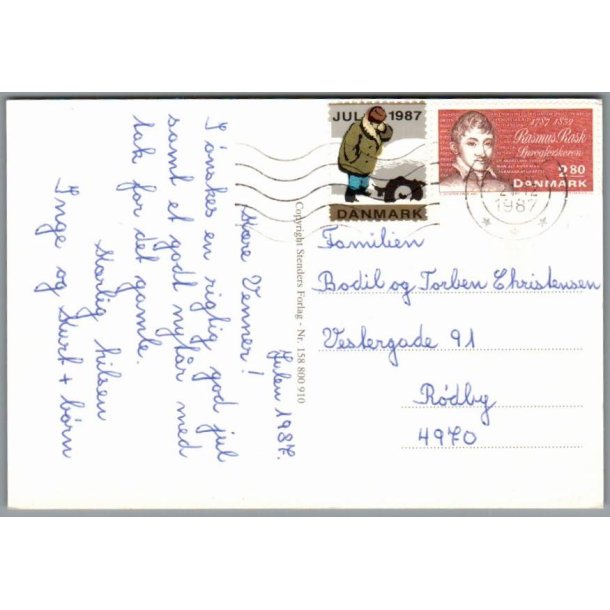 Julen 1987.
Kære Venner!
I ønskes en rigtig god jul
samt et godt nytår med
tak for det gamle.
Kærlig hilsen
Inge og Kurt + børn
Copyright Stenders Forlag - Nr. 158 800 910
JUL 1987
DANMARK
1787 1832
Rasmus Rask
Sprogforskeren
2.80
DANMARK
1987
Familien
Bodil og Torben Christensen
Vestergade 91
Rødby
4970